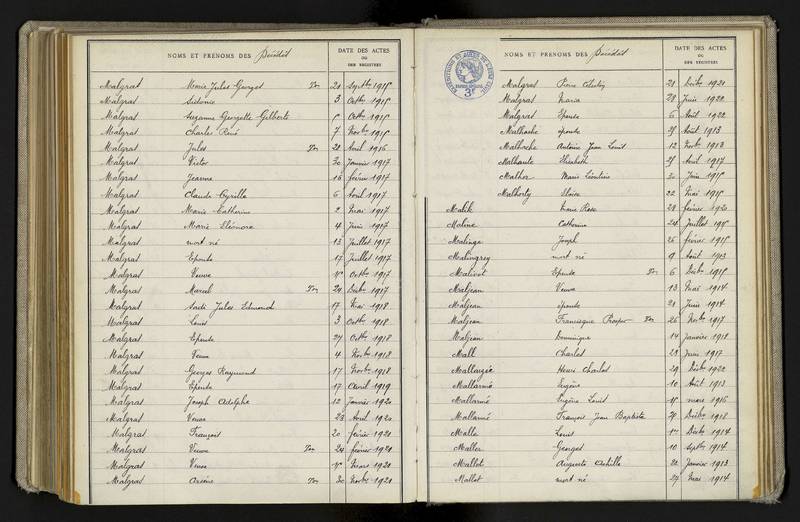 NOMS ET PRÉNOMS DES Décédés
DATE DES ACTES
OU
DES REGISTRES
Malgras Marie Jules Georges Ton 20 Septbre 1915
Malgras Sidonie 3 Octbre 1915
Malgras Suzanne Georgette Gilberte 5 Octbre 1915
Malgras Charles René 7 Novbre 1915
Malgras Jules Ton 20 Avril 1916
Malgras Victor 30 Janvier 1917
Malgras Jeanne 16 février 1917
Malgras Claude Cyrille 6 Avril 1917
Malgras Marie Catherine 2 Mai 1917
Malgras Marie Eléonore 4 Juin 1917
Malgras mort né 13 Juillet 1917
Malgras Epouse 17 Juillet 1917
Malgras Veuve 15 Octbre 1917
Malgras Marcel Ton 24 Décbre 1917
Malgras Jules Edmond 17 Mai 1918
Malgras Louis 3 Octbre 1918
Malgras Epouse 27 Octbre 1918
Malgras Veuve 4 Novbre 1918
Malgras Georges Raymond 17 Novbre 1918
Malgras Epouse 17 Avril 1919
Malgras Joseph Adolphe 12 Janvier 1920
Malgras Veuve 23 Avril 1920
Malgras François 20 février 1921
Malgras Veuve Ton 24 février 1921
Malgras Veuve 15 Mars 1921
Malgras Arsène Ton 30 Novbre 1921
NOMS ET PRÉNOMS DES Décédés
DATE DES ACTES
OU
DES REGISTRES
3F
Malgras Pierre 21 Décbre 1921
Malgras Maria 28 Juin 1922
Malgras Epouse 6 Août 1922
Malhache épouse Août 1913
Malhache Antoine Jean Louis 12 Novbre 1913
Malhaute Elisabeth Avril 1917
Marie Léontine 30 Juin 1915
Malhorty Eloïse 22 Mai 1915
Malik Marie Rose février 1920
Catherine 24 Juillet 1915
Malinge Joseph 26 février 1915
Malingrey mort né 9 Août 1913
Malivot Epouse Ton 6 Décbre 1915
Maljean Veuve 13 Mai 1914
Maljean épouse 21 Juin 1914
Maljean Francisque Prosper Ton 26 Novbre 1917
Maljean Dominique 14 Janvier 1918
Mall Charles 1917
Mallargée Henri Charles 29 Décbre 1922
Mallarmé Eugène 10 Août 1913
Mallarmé Eugène Louis 15 mars 1916
Mallarmé François Jean Baptiste Décbre 1918
Malle Louis 1er Décbre 1914
Maller Georges 10 Septbre 1914
Mallot Auguste Achille 22 Janvier 1913
Mallot mort né 27 Mai 1914